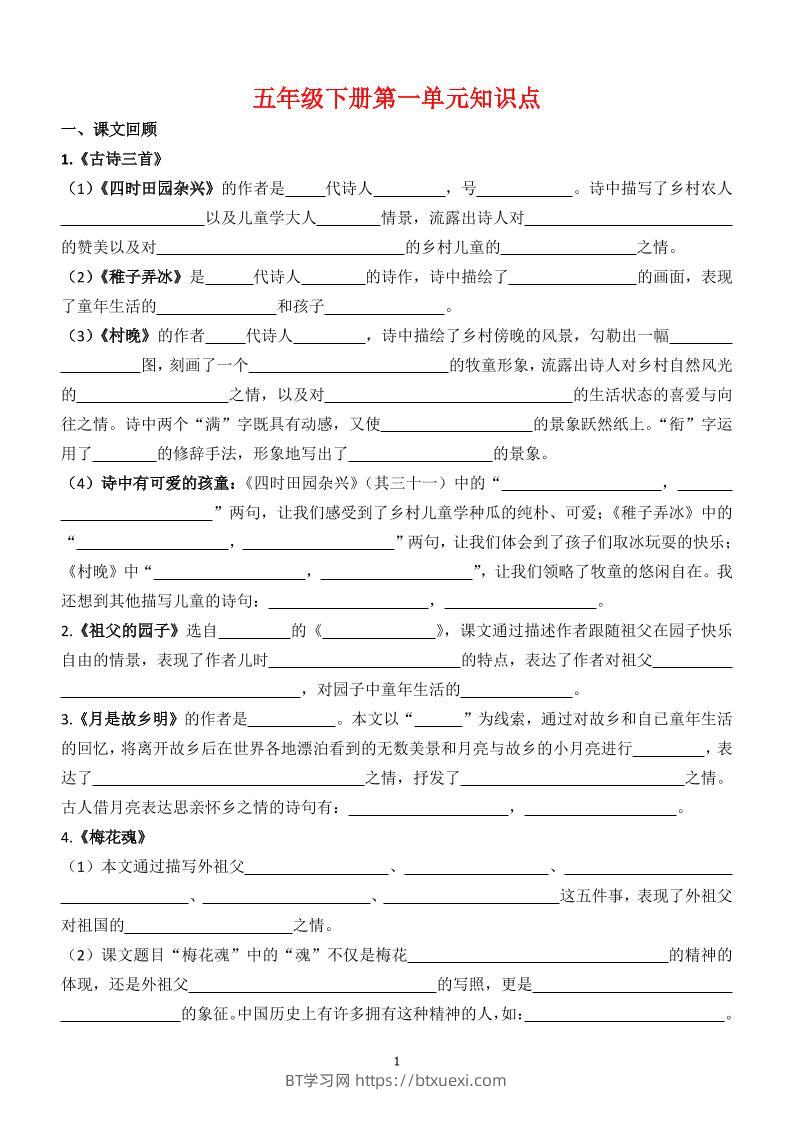 五年级下册第一单元知识点
一、课文回顾
1.《古诗三首》
（1）《四时田园杂兴》的作者是_____代诗人_________，号____________。诗中描写了乡村农人
__________________以及儿童学大人________情景，流露出诗人对__________________________
的赞美以及对_______________________________的乡村儿童的_________________之情。
（2）《稚子弄冰》是______代诗人________的诗作，诗中描绘了________________的画面，表现
了童年生活的_______________和孩子_______________。
（3）《村晚》的作者_____代诗人_________，诗中描绘了乡村傍晚的风景，勾勒出一幅________
__________图，刻画了一个_________________________的牧童形象，流露出诗人对乡村自然风光
的___________________之情，以及对_______________________________的生活状态的喜爱与向
往之情。诗中两个“满”字既具有动感，又使___________________的景象跃然纸上。“衔”字运
用了________的修辞手法，形象地写出了__________________的景象。
（4）诗中有可爱的孩童：《四时田园杂兴》（其三十一）中的“____________________，_______
___________________”两句，让我们感受到了乡村儿童学种瓜的纯朴、可爱；《稚子弄冰》中的
“___________________，___________________”两句，让我们体会到了孩子们取冰玩耍的快乐；
《村晚》中“___________________，___________________”，让我们领略了牧童的悠闲自在。我
还想到其他描写儿童的诗句：____________________，___________________。
2.《祖父的园子》选自_________的《______________》，课文通过描述作者跟随祖父在园子快乐
自由的情景，表现了作者儿时________________________的特点，表达了作者对祖父__________
______________________________，对园子中童年生活的______________。
3.《月是故乡明》的作者是___________。本文以“______”为线索，通过对故乡和自己童年生活
的回忆，将离开故乡后在世界各地漂泊看到的无数美景和月亮与故乡的小月亮进行_________，表
达了__________________________________之情，抒发了____________________________之情。
古人借月亮表达思亲怀乡之情的诗句有：____________________，___________________。
4.《梅花魂》
（1）本文通过描写外祖父__________________、__________________、_____________________
________________、_____________________、______________________这五件事，表现了外祖父
对祖国的_____________________之情。
（2）课文题目“梅花魂”中的“魂”不仅是梅花_________________________________的精神的
体现，还是外祖父_______________________________的写照，更是_________________________
_______________的象征。中国历史上有许多拥有这种精神的人，如：_________________________。
1
BT学习网 https://btxuexi.com